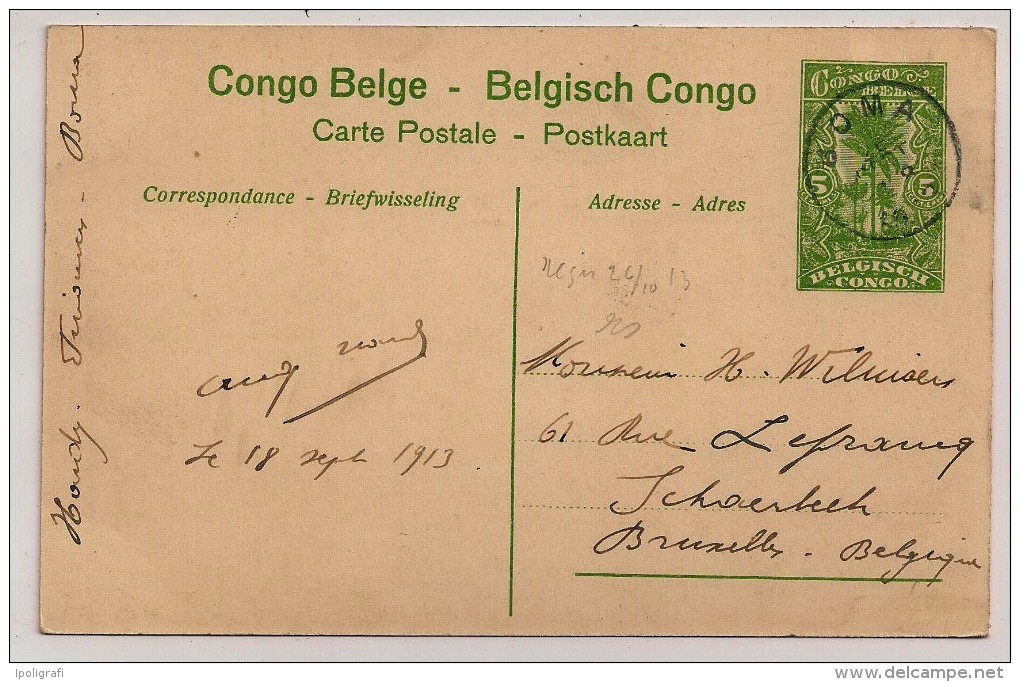 Congo Belge - Belgisch Congo
Carte Postale - Postkaart
Correspondance - Briefwisseling
Adresse - Adres
CONGO BELGE
5 5
BELGISCH CONGO
BOMA
26/10 13
Monsieur H. Willmers
61 Rue Lefrancq
Schaerbeek
Bruxelles - Belgique
Le 18 sept 1913
Boma
Ipoligrafi
www.delcampe.net